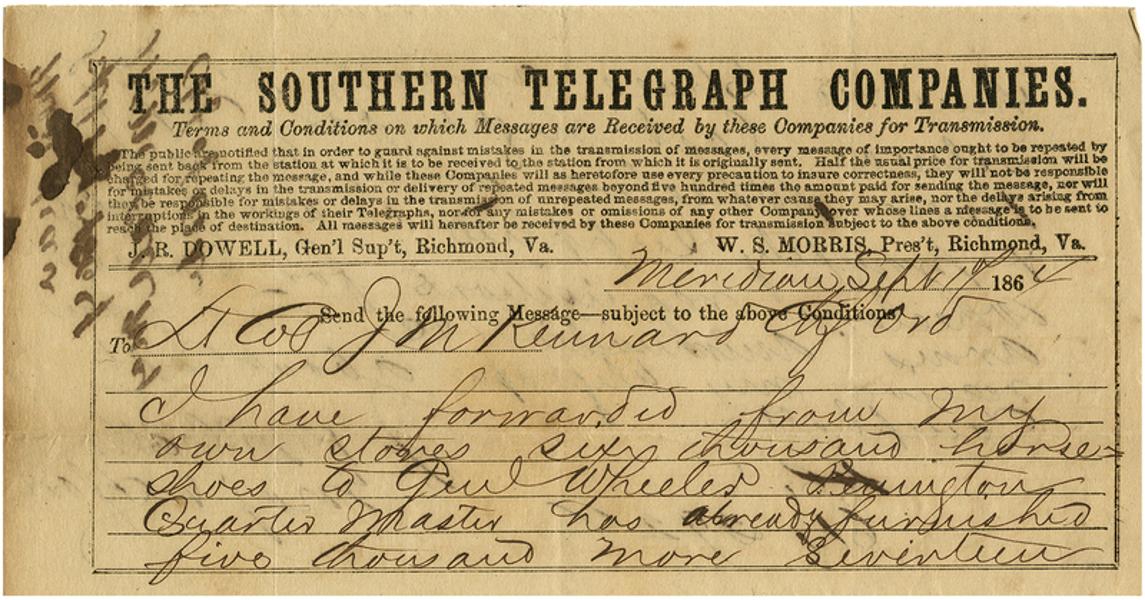 THE SOUTHERN TELEGRAPH COMPANIES.
Terms and Conditions on which Messages are Received by these Companies for Transmission.
The public are notified that in order to guard against mistakes in the transmission of messages, every message of importance ought to be repeated by
being sent back from the station at which it is to be received to the station from which it is originally sent. Half the usual price for transmission will be
charged for repeating the message, and while these Companies will as heretofore use every precaution to insure correctness, they will not be responsible
for mistakes or delays in the transmission or delivery of repeated messages beyond five hundred times the amount paid for sending the message, nor will
they be responsible for mistakes or delays in the transmission of unrepeated messages, from whatever cause they may arise, nor the delays arising from
interruptions in the workings of their Telegraphs, nor for any mistakes or omissions of any other Company over whose lines a message is to be sent to
reach the place of destination. All messages will hereafter be received by these Companies for transmission subject to the above conditions.
J. R. DOWELL, Gen'l Sup't, Richmond, Va. W. S. MORRIS, Pres't, Richmond, Va.
Meridian Sept 19 1864
Send the following Message—subject to the above Conditions
To Lt Col J M Kennard Ord
I have forwarded from my
own stores six thousand horse=
shoes to Genl Wheeler
Quarter Master has already furnished
five thousand more Seventeen